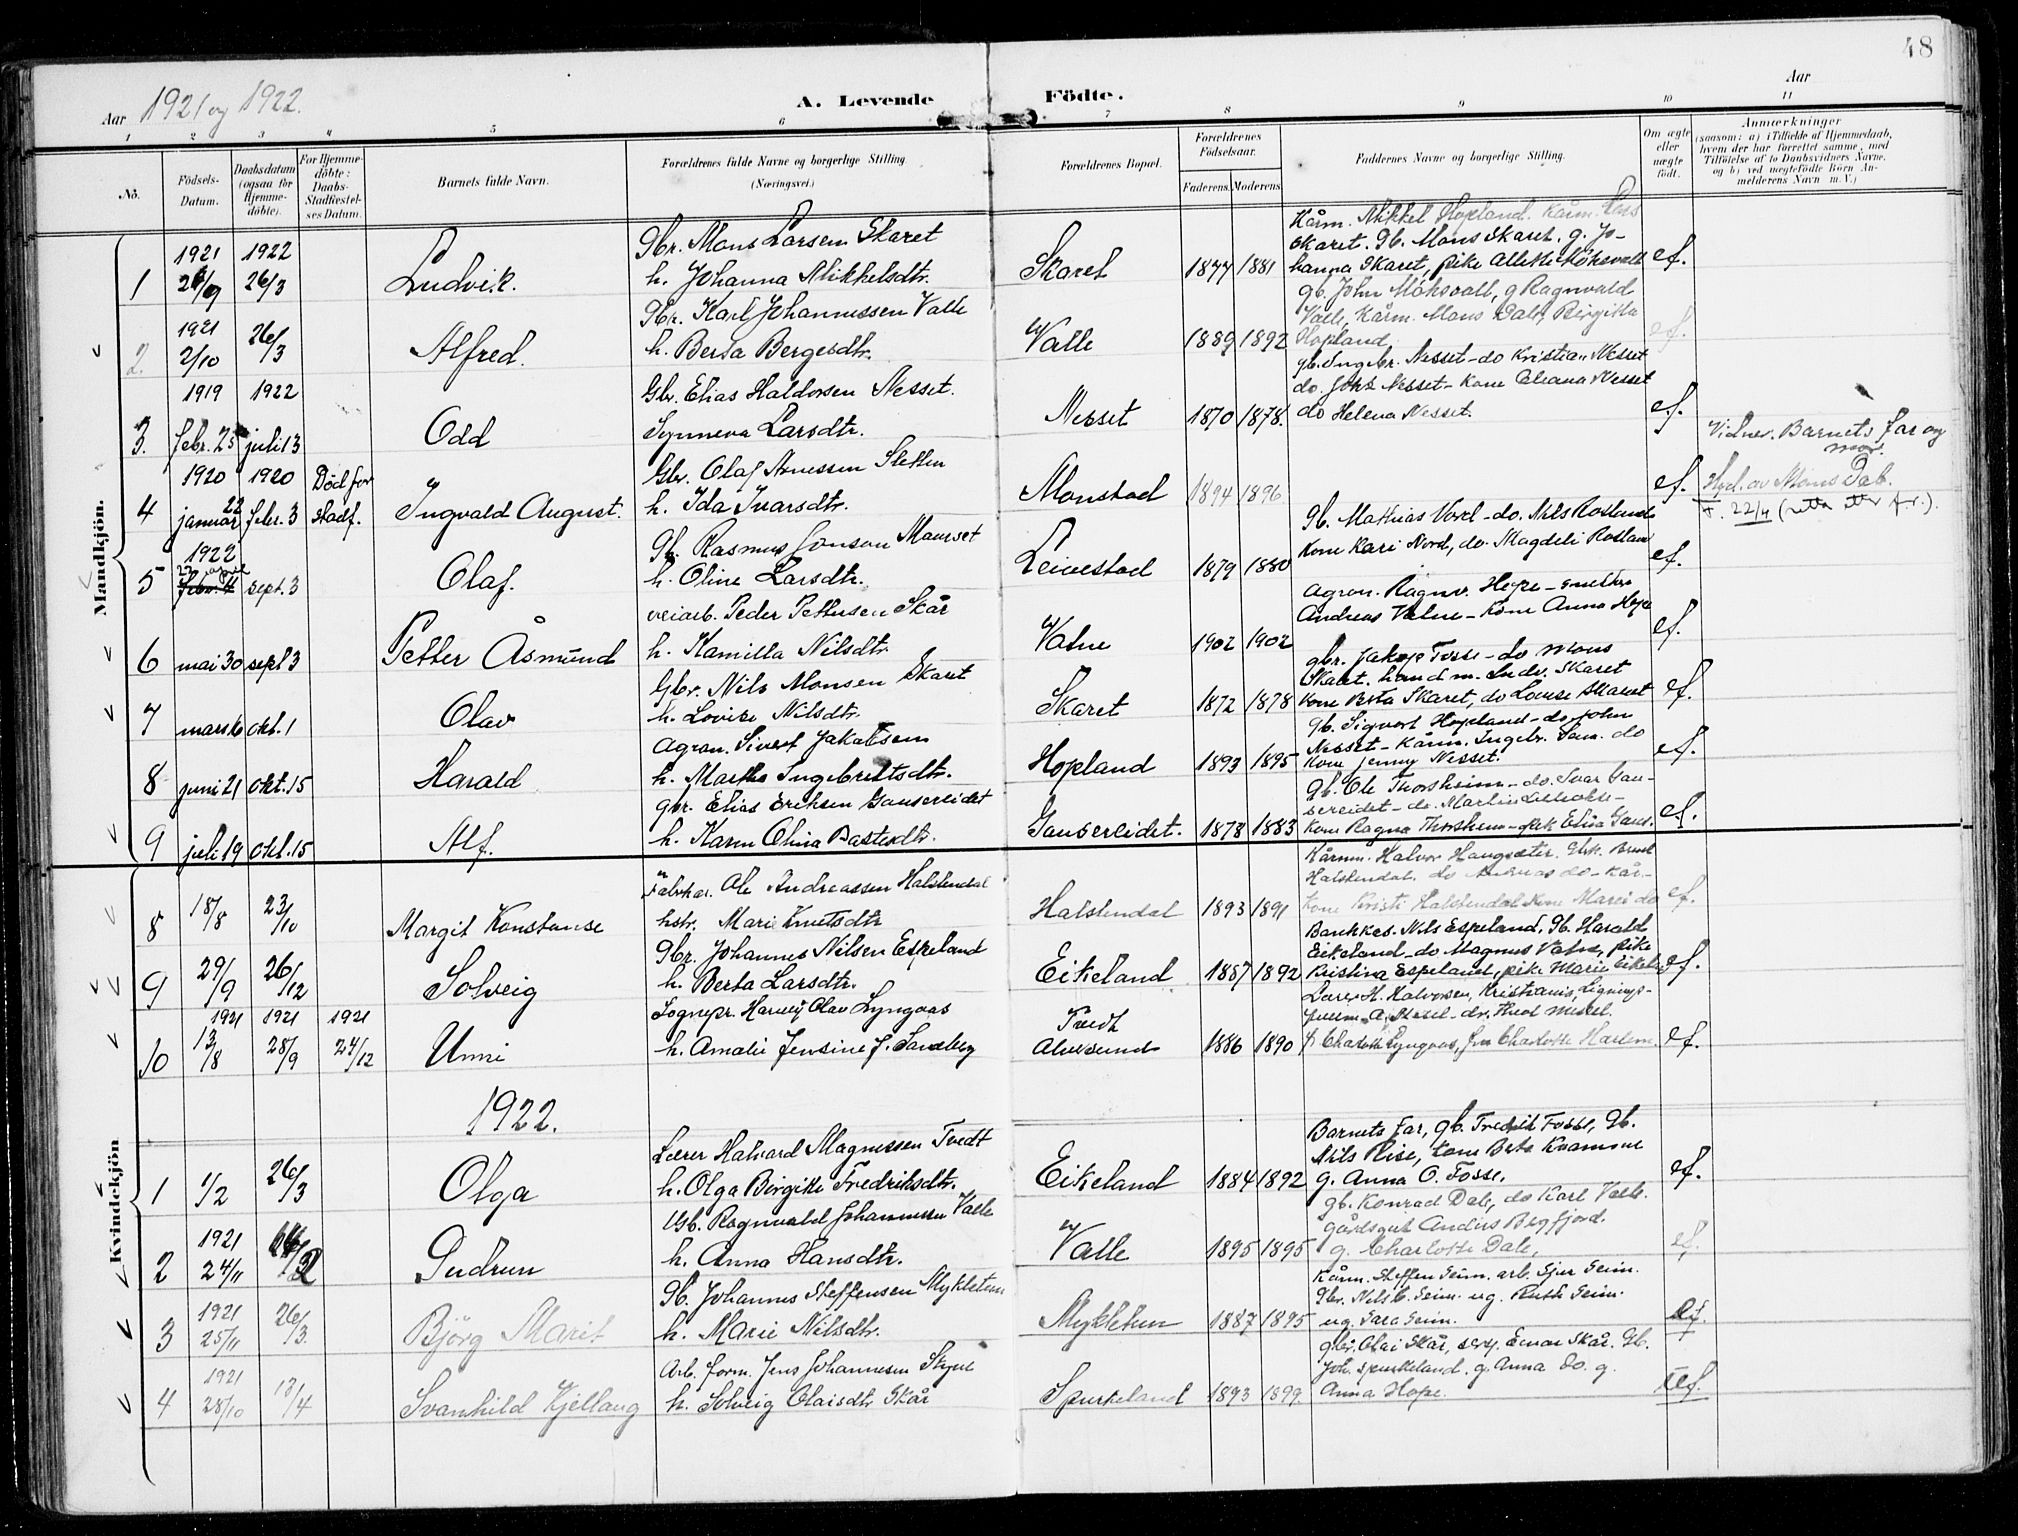 48
Aar 1921 og 1922.
A. Levende Födte.
Aar
1 2 3 4 5 6 7 8 9 10 11
No.
Födsels-Datum.
Daabsdatum (ogsaa for Hjemme-döbte).
For Hjemme-döbte: Daabs-Stadfæstel-ses Datum.
Barnets fulde Navn.
Forældrenes fulde Navne og borgerlige Stilling. (Næringsvei.)
Forældrenes Bopæl.
Forældrenes Födselsaar.
Faderens. Moderens.
Faddernes Navne og borgerlige Stilling.
Om ægte eller uægte födt.
Anmærkninger
(saasom: a) i Tilfælde af Hjemmedaab,
hvem der har forrettet samme, med
Tilföielse af to Daabsvidners Navne,
og b) ved uægtefödte Börn An-
melderens Navn m. V.)
Mandkjön.
1 1921 1922 26/3 Ludvik.
Gbr. Mons Larsen Skaret
h. Johanna Mikkelsdtr.
Skaret 1877 1881
Kårm. Mikkel Hopland. Kårm. Lars
Skaret. Gb. Mons Skaret. g. Jo-
hanna Skaret, pike
ef.
2. 1921 2/10 26/3 Alfred.
Gbr. Karl Johannessen Valle
h. Berta Bergesdtr.
Valle 1889 1892
gb. John g Ragnvald
Valle, Kårm. Mons Dale, Birgitta
Hopland.
ef.
3. 1919 febr. 25 1922 juli 13 Odd
Gbr. Elias Haldorsen Nesset.
Synneva Larsdtr.
Nesset 1870 1878.
gb. Ingebr. Nesset - do Kristian Nesset
do John Nesset - Kone Oleana Nesset
do Helena Nesset.
ef.
4 1920 januar 22 1920 febr. 3 Död før stadf. Ingvald August.
Gbr. Olaf Arnessen Sletten
h. Ida Ivarsdtr.
Monstad 1894 1896
ef.
Vidner. Barnets far og
mor.
Hjd. av Mons Dale.
†. 22/4
5 1922 27 april sept. 3 Olaf.
Gb. Rasmus Jonson Maurset
h. Oline Larsdtr.
Leivestad 1879 1880
Gb. Mathias - do. Nils Rosland
Kone Kari do. Magdeli Rosland
ef.
6 mai 30 sept 3 Petter Åsmund
veiarb. Peder Pettersen Skår
h. Kamilla Nilsdtr.
Vatne 1902 1902
agron. Ragnv. Hope - snekker
Andreas Vatne - Kone Anna Hope
ef.
7 mars 6 okt. 1 Olav
Gbr. Nils Monsen Skaret
h. Lovise Nilsdtr.
Skaret 1872 1878
gbr. Jakop Fosse - do Mons
Skaret. handm. Ludv. Skaret
Kone Berta Skaret, do Lovise Skaret
ef.
8 juni 21 okt. 15 Harald
Agron. Sivert Jakobsen
h. Martha Ingebrettsdtr.
Hopland 1893 1895
gb. Sigvart Hopland - do John
Nesset - Kårm. Ingebr. Sam. do
Kone Jenny Nesset.
ef.
9 juli 19 okt. 15 Alf.
gbr. Elias Eriksen Gausereidet
h. Karen Olina
Gausereidet. 1878 1883
gb. Ole Thorsheim - do. Ivar Gau-
sereidet - do. Martin
Kone Ragna Thorsheim - Elisa Gaus.
ef.
Kvindekjön
8 18/8 23/10 Margit Konstanse
Ole Andreassen Halstendal
hstr. Marie Knutsdtr
Halstendal 1893 1891
Kårmm. Halvor
Halstendal. do Andreas do - Kår-
kone Kristi Halstendal Kone Marie do
ef.
9 29/9 26/12 Solveig
Gbr. Johannes Nilsen Espeland
h. Berta Larsdtr.
Eikeland 1887 1892
Bankkas. Nils Espeland, Gb. Harald
Eikeland - do Magnus Vatne, pike
Kristina Espeland, pike Marie Eikeland
ef.
10 1921 13/8 1921 28/9 1921 24/12 Unni
Sognepr. Olav Lyngvas
h. Amalie Jensine J. Sandberg
Tvedt
Alversund 1886 1890
Lærer H. Halvorsen, Kristiania,
ef.
1922.
1 1/2 26/3 Olga
Lærer Halvard Magnussen Tvedt
h. Olga Birgitte Fredriksdtr.
Eikeland 1884 1892
Barnets far, gb. Fredrik Fosse, Gb.
Nils Rise, Kone Berta Kvamme
g. Anna O. Fosse.
ef.
2 1921 24/11 Gudrun
Gb. Ragnvald Johannessen Valle
h. Anna Hansdtr.
Valle 1895 1895
gb. Konrad Dale, do Karl Valle.
gårdsgut Anders
g. Charlotte Dale,
ef.
3 1921 25/11 26/3. Björg Marit
Gb. Johannes Steffensen Mykletun
h. Marie Nilsdtr.
Mykletun 1887 1895
Kårm. Steffen Seim. arb. Sjur Seim.
Gbr. Nils L. Seim. ug. Ruth Seim.
ug. Sara Seim.
ef.
4 1921 28/10 13/4 Svanhild Kjellaug
Arb. form. Jens Johannessen
h. Solveig Olaisdtr Skår
Spurkeland 1893 1899.
gbr. Olai Skår, Einar Skår. Gb.
Joh. Spurkeland. g. Anna do. g.
Anna Hope.